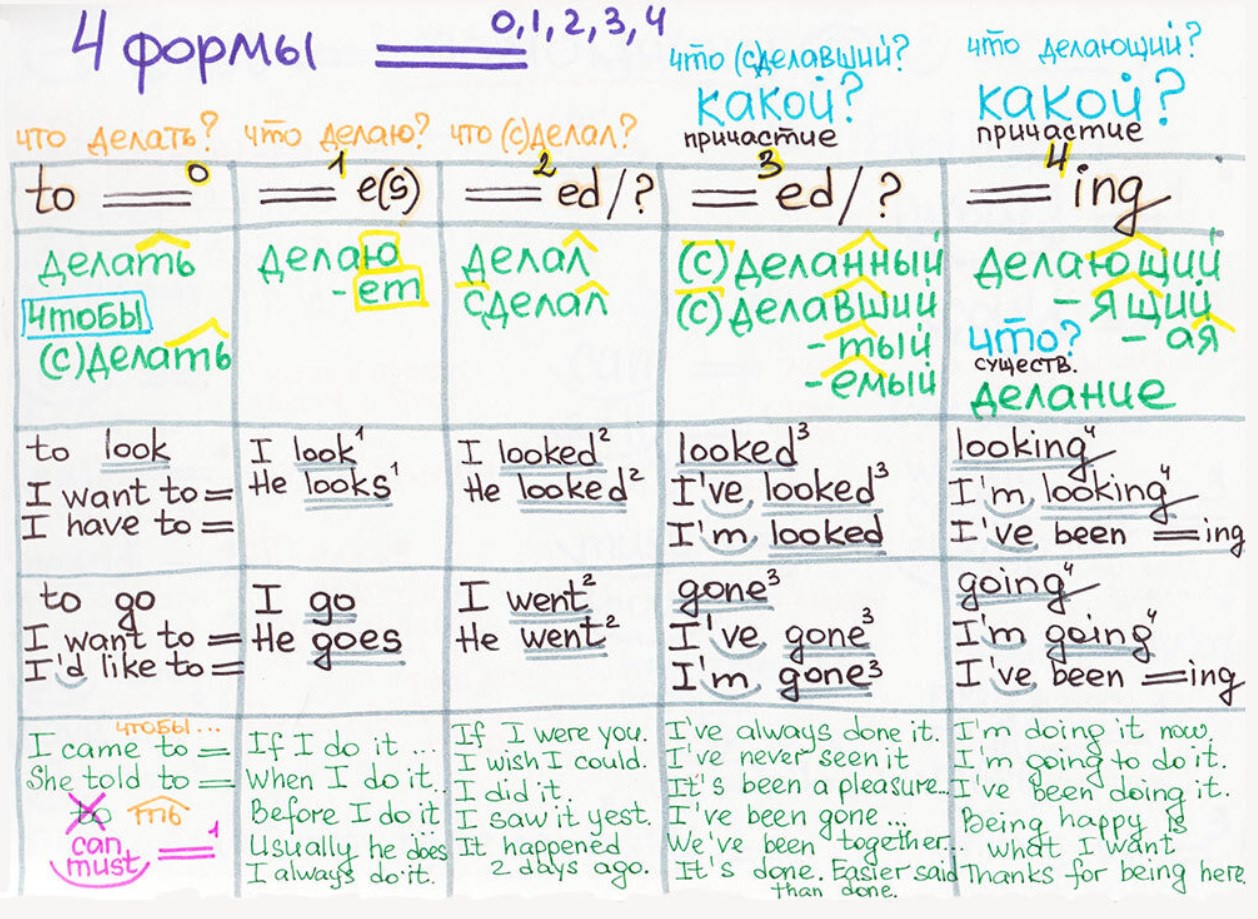 4 формы 0, 1, 2, 3, 4
что делать?
что делаю?
что (с)делал?
что (с)делавший?
какой?
причастие
что делающий?
какой?
причастие
to 0
1 e(s)
2 ed/?
3 ed/?
4 ing
делать
чтобы
(с)делать
делаю
-ет
делал
сделал
(с)деланный
(с)делавший
-тый
-емый
делающий
- ящий
- ая
что?
существ.
делание
to look
I want to =
I have to =
I look¹
He looks¹
I looked²
He looked²
looked³
I've looked³
I'm looked
looking⁴
I'm looking⁴
I've been =ing
to go
I want to =
I'd like to =
I go
He goes
I went²
He went²
gone³
I've gone³
I'm gone³
going⁴
I'm going⁴
I've been =ing
чтобы...
I came to =
She told to =
to ть
can
must = 1
If I do it ...
When I do it..
Before I do it
Usually he does
I always do it.
If I were you.
I wish I could.
I did it.
I saw it yest.
It happened
2 days ago.
I've always done it.
I've never seen it
It's been a pleasure...
I've been gone ...
We've been together...
It's done. Easier said
than done.
I'm doing it now.
I'm going to do it.
I've been doing it.
Being happy is
what I want
Thanks for being here.